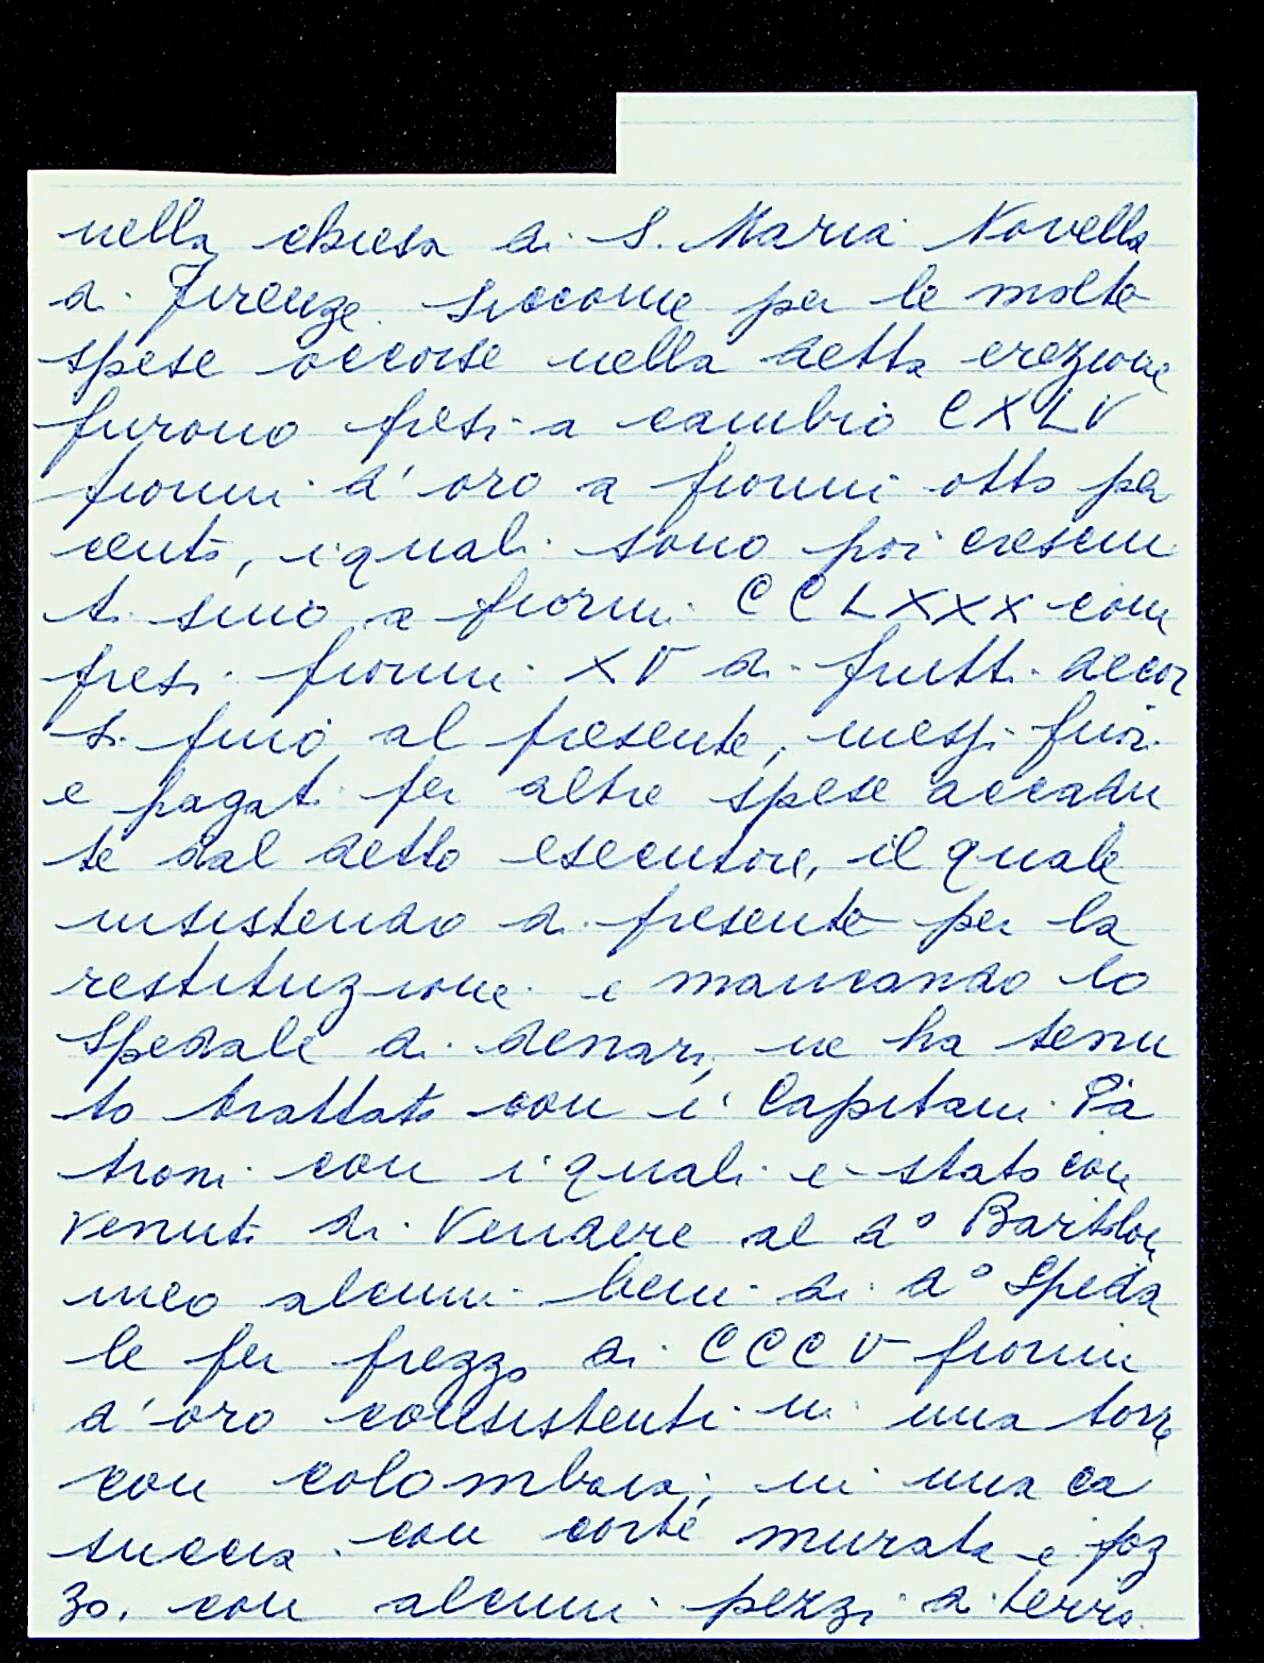 nella chiesa di S. Maria Novella
di Firenze siccome per le molte
spese occorse nella detta erezione
furono presi a cambio CXLV
fiorini d'oro a fiorini otto per
cento, i quali sono poi cresciu
ti sino a fiorini CCLXXX com
presi fiorini XV di frutti decor
si fino al presente, messi fuori
e pagati per altre spese accadu
te dal detto esecutore, il quale
insistendo di presente per la
restituzione e mancando lo
Spedale di denari, ne ha tenu
to trattato con i Capitani Pa
troni con i quali è stato con
venuti di Vendere al do Bartolom
meo alcuni beni di do Speda
le per prezzo di CCCV fiorini
d'oro consistenti in una torre
con colombaia; in una ca
succia con corte murata e poz
zo. con alcuni pezzi di terra.